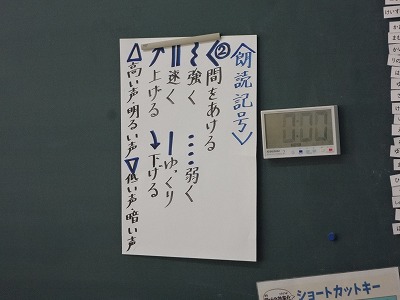 〈朗読記号〉
②間をあける
強く 弱く
速く ゆっくり
上げる 下げる
△高い声・明るい声 ▽低い声・暗い声
0:00
ショートカットキー